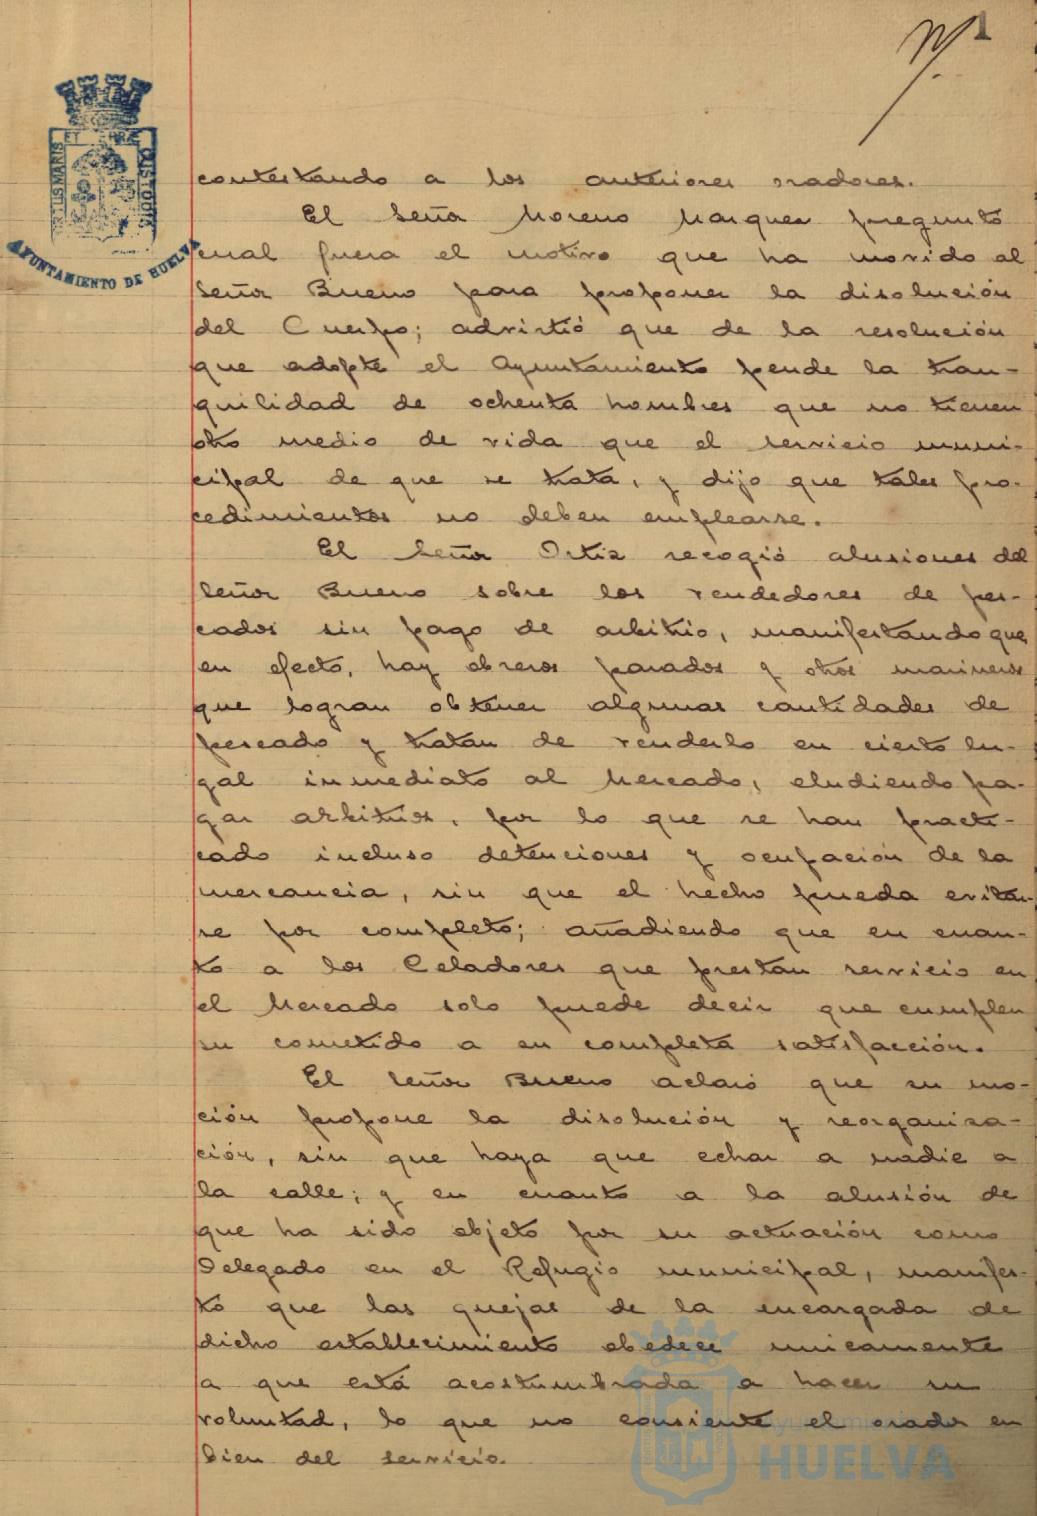 1
PORTUS MARIS ET TERRÆ CUSTODIA
AYUNTAMIENTO DE HUELVA
contestando a los anteriores oradores.
El Señor Moreno Marquez preguntó
cual fuera el motivo que ha movido al
Señor Bueno para proponer la disolución
del Cuerpo; advirtió que de la resolución
que adopte el Ayuntamiento pende la tran-
quilidad de ochenta hombres que no tienen
otro medio de vida que el servicio muni-
cipal de que se trata, y dijo que tales pro-
cedimientos no deben emplearse.
El Señor Ortiz recogió alusiones del
Señor Bueno sobre los vendedores de pes-
cados sin pago de arbitrio, manifestando que,
en efecto, hay obreros parados y otros marineros
que logran obtener algunas cantidades de
pescado y tratan de venderlo en cierto lu-
gal inmediato al Mercado, eludiendo pa-
gar arbitrios, por lo que se han practi-
cado incluso detenciones y ocupación de la
mercancia, sin que el hecho pueda evitar-
se por completo; añadiendo que en cuan-
to a los Celadores que prestan servicio en
el Mercado solo puede decir que cumplen
su cometido a su completa satisfacción.
El Señor Bueno aclaró que su mo-
ción propone la disolución y reorganiza-
ción, sin que haya que echar a nadie a
la calle; y en cuanto a la alusión de
que ha sido objeto por su actuación como
Delegado en el Refugio municipal, manifes-
tó que las quejas de la encargada de
dicho establecimiento obedece unicamente
a que está acostumbrada a hacer su
voluntad, lo que no consiente el orador en
bien del servicio.
Ayuntamiento
HUELVA